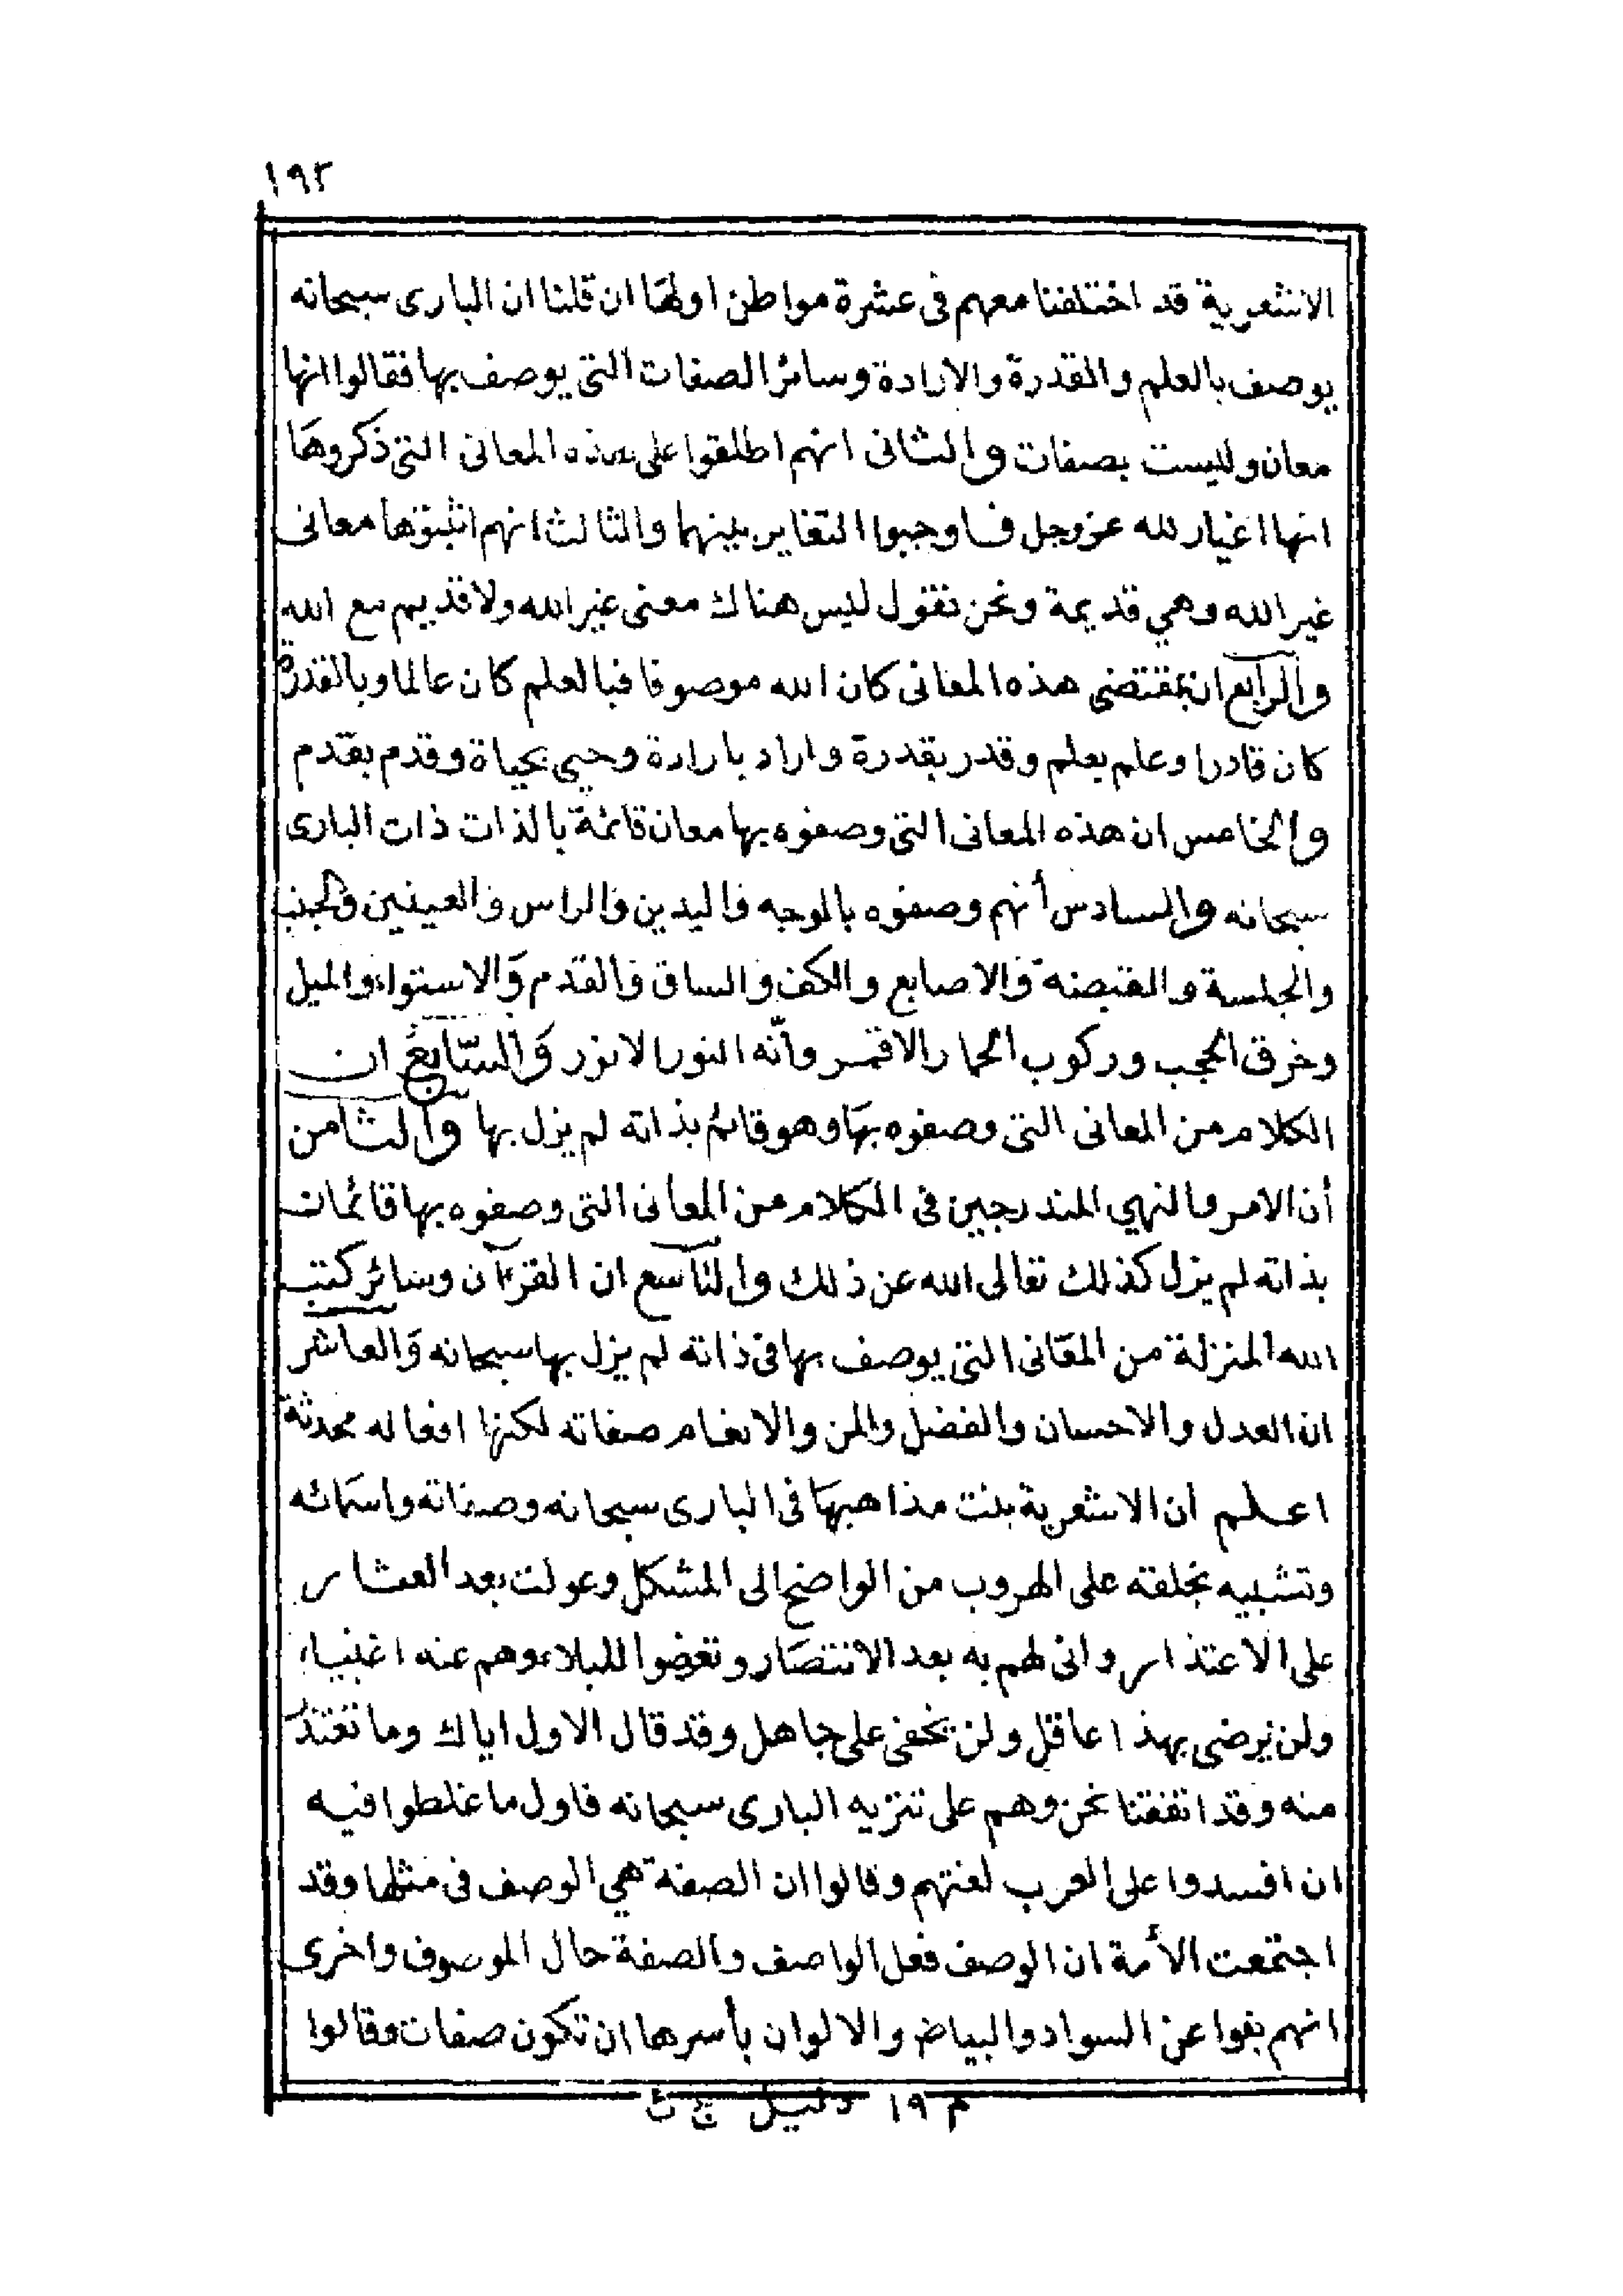 ١٩٣
الاشعرية قد اختلفنا معهم فى عشرة مواطن اولها ان قلنا ان البارى سبحانه
يوصف بالعلم والقدرة والارادة وسائر الصفات التى يوصف بها فقالوا انها
معان وليست بصفات والثانى انهم اطلقوا على هذه المعانى التى ذكروها
انها اغيار لله عز وجل فاوجبوا التغاير بينهما والثالث انهم اثبتوها معانى
غير الله وهي قديمة ونحن نقول ليس هناك معنى غير الله ولا قديم مع الله
والرابع ان بمقتضى هذه المعانى كان الله موصوفا فبالعلم كان عالما وبالقدرة
كان قادرا وعلم بعلم وقدر بقدرة واراد بارادة وحيي بحياة وقدم بقدم
والخامس ان هذه المعانى التى وصفوه بها معان قائمة بالذات ذات البارى
سبحانه والسادس أنهم وصفوه بالوجه واليدين والراس والعينين والجنب
والجلسة والقبضة والاصابع والكف والساق والقدم والاستواء والميل
وخرق الحجب وركوب الحمار الاقمر وأنّه النور الانور وَالسّابع ان
الكلام من المعانى التى وصفوه بها وهو قائم بذاته لم يزل بها والثامن
أن الامر والنهي المندرجين فى الكلام من المعانى التى وصفوه بها قائمات
بذاته لم يزل كذلك تعالى الله عن ذلك والتاسع ان القرآن وسائر كتب
الله المنزلة من المعانى التى يوصف بها فى ذاته لم يزل بها سبحانه وَالعاشر
ان العدل والاحسان والفضل والمن والانعام صفاته لكنها افعاله محدثة
اعلم ان الاشعرية بنت مذاهبها فى البارى سبحانه وصفاته واسمائه
وتشبيه بخلقه على الهروب من الواضح الى المشكل وعولت بعد العثار
على الاعتذار وانى لهم به بعد الانتصار وتعرضوا للبلاء وهم عنه اغنياء
ولن يرضى بهذا عاقل ولن يخفى على جاهل وقد قال الاول اياك وما تعتذر
منه وقد اتفقنا نحن وهم على تنزيه البارى سبحانه فاول ما غلطوا فيه
ان افسدوا على العرب لغتهم وقالوا ان الصفة هي الوصف فى مثلها وقد
اجتمعت الأمة ان الوصف فعل الواصف والصفة حال الموصوف واخرى
انهم نفوا عن السواد والبياض والالوان بأسرها ان تكون صفات وقالوا
م ١٩ دليل ج ث